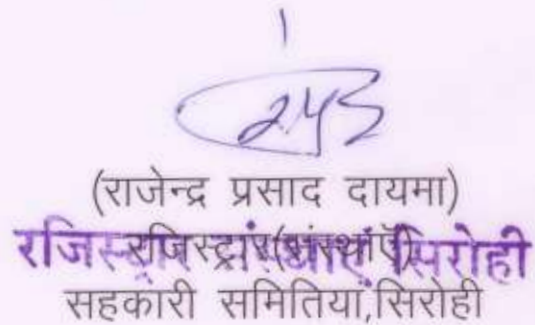 (राजेन्द्र प्रसाद दायमा)
रजिस्ट्रार(संस्थाऐं)
रजिस्ट्रार संस्थाएं सिरोही
सहकारी समितियां,सिरोही